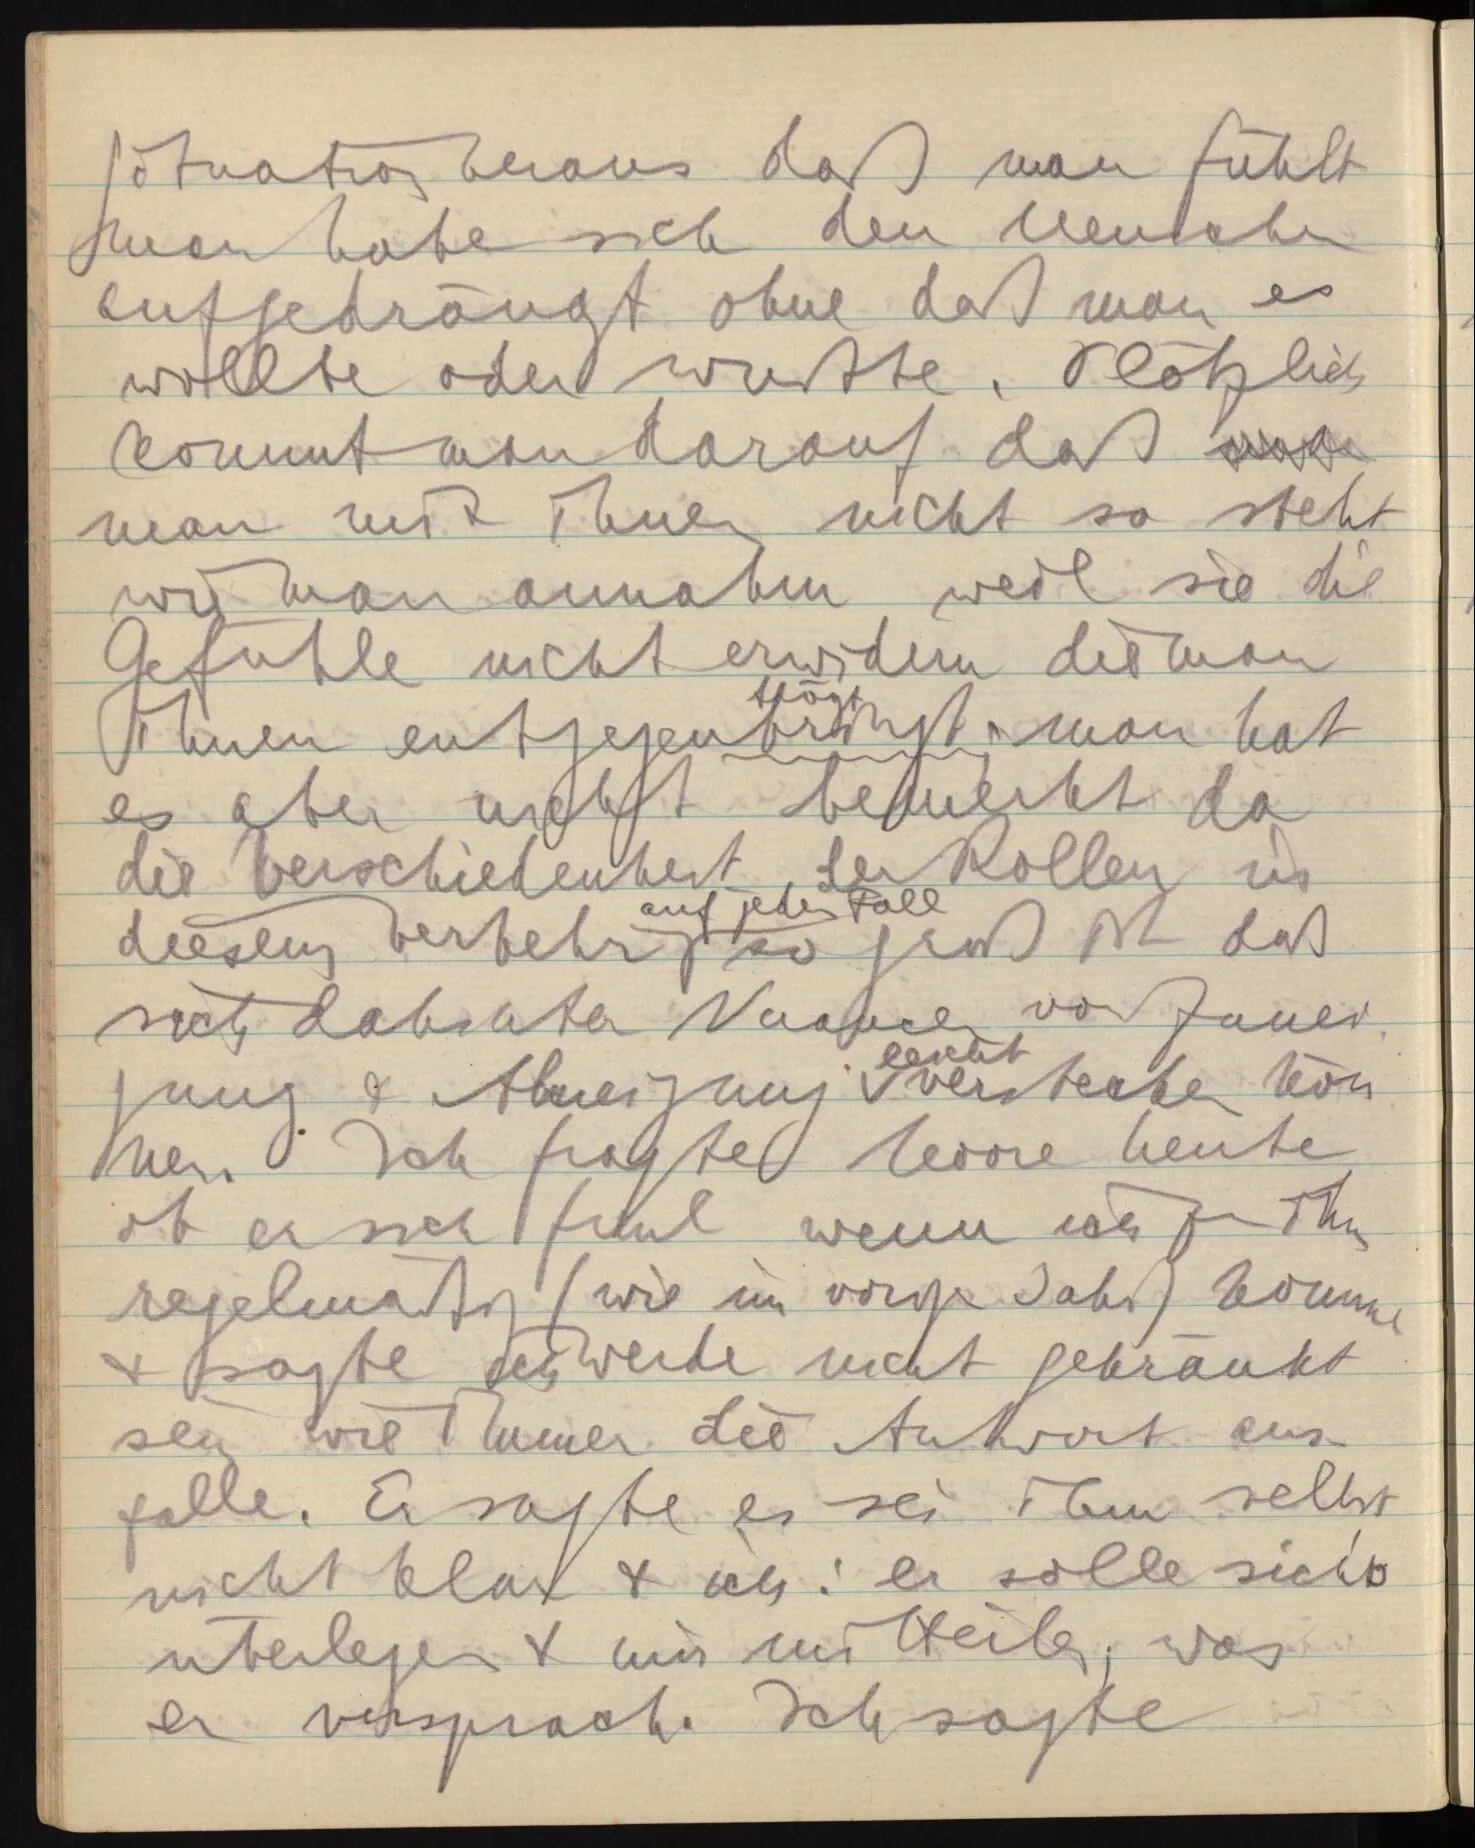 Situation heraus daß man fühlt
man habe sich den Menschen
aufgedrängt ohne daß man es
wollte oder wußte. Plötzlich
kommt man darauf daß man
man mit ihnen nicht so steht
wie man annahm weil sie die
Gefühle nicht erwidern die man
trägt
ihnen entgegenbringt. man hat
es aber nicht bemerkt da
die Verschiedenheit der Rollen in
auf jeden Fall
diesem Verkehr so groß ist daß
sich dahinter Nuancen von Zunei
leicht
gung & Abneigung verstecken kön
nen. Ich fragte Moore heute
ob er sich freut wenn ich zu ihm
regelmäßig (wie im vorige Jahr) komme
& sagte ich werde nicht gekränkt
sein wie immer die Antwort aus
falle. Er sagte es sei ihm selbst
nicht klar & ich: er solle sich's
überlegen & mir mitteilen, was
er versprach. Ich sagte